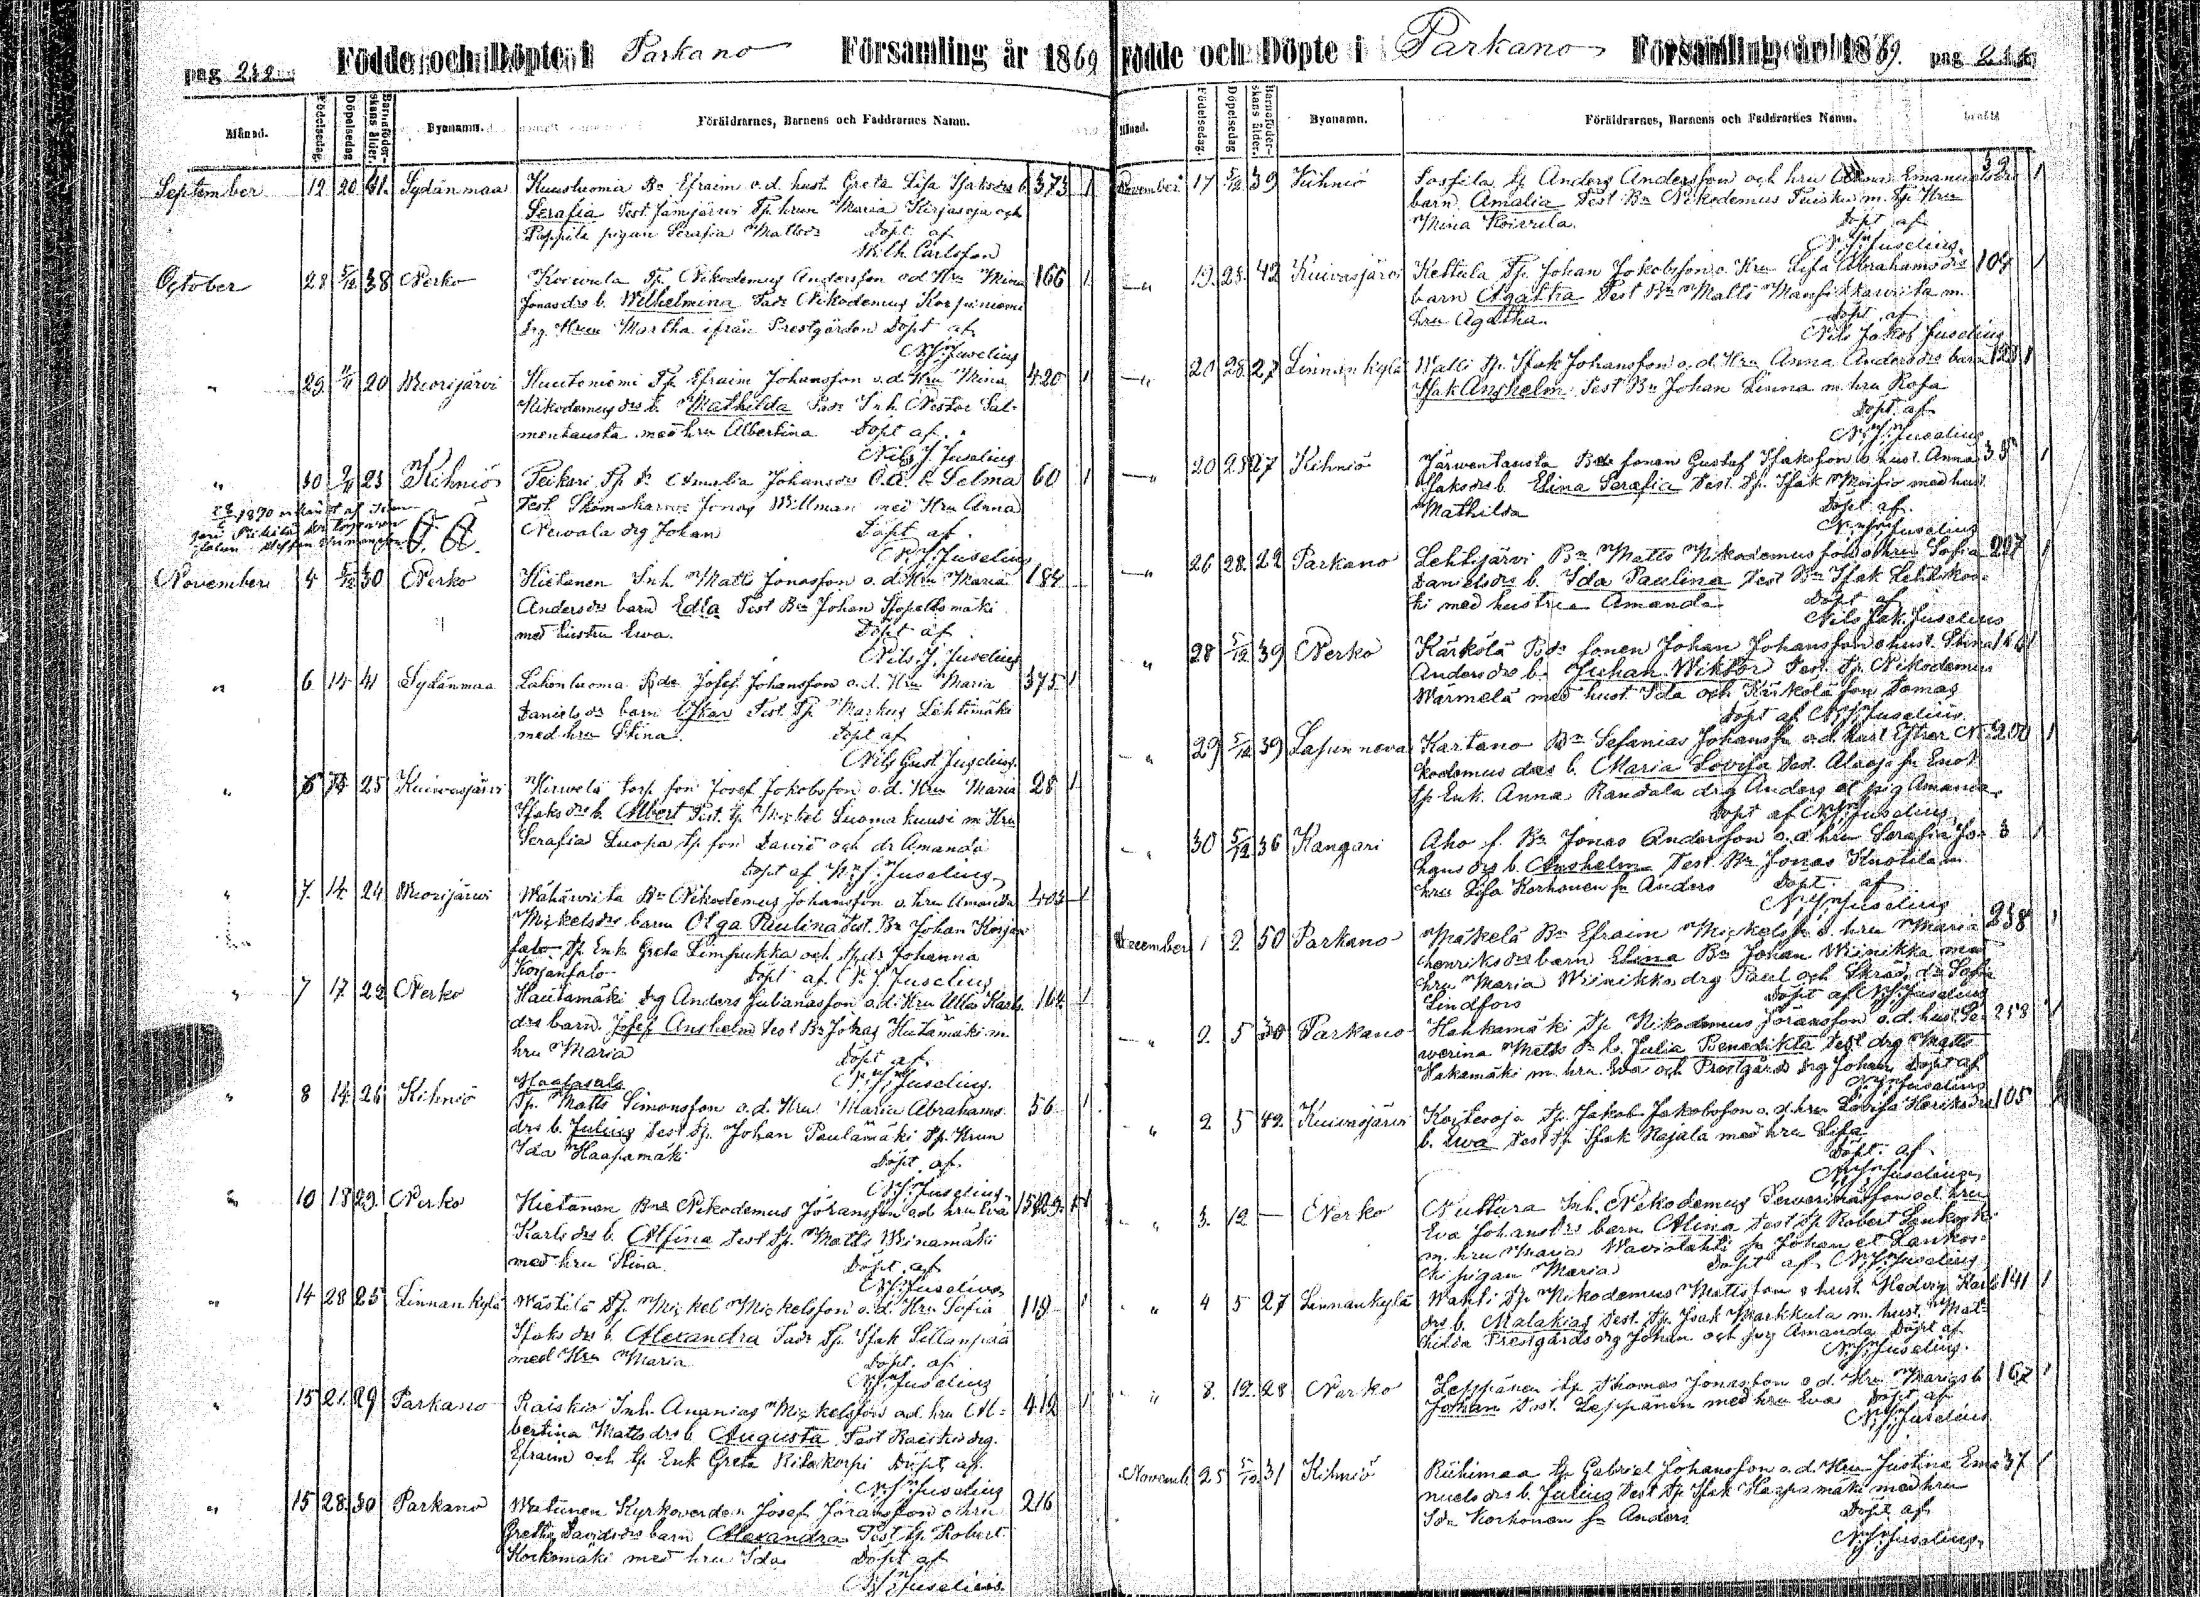 pag 252
Födde och Döpte i Parkano Församling år 1869
Månad. Födelsedag. Döpelsedag Barnaföder-skans ålder. Bynamn. Föräldrarnes, Barnens och Faddrarnes Namn.
September 12 20 41. Sydänmaa Kuusluomia Bn Efraim o.d. hust. Greta Lisa Isaksdr b. 373 1
Serafia Test. Jämijärvi Tp. hrun Maria Kirjasoja och
Poppila pigan Serafia Mattsdr Döpt af
Wilh. Carlsson
October 28 5/12 38 Nerko Koivula Tp. Nikodemus Andersson o.d. Hru Mina 166 1
Jonasdrs b. Wilhelmina Nikodemus Korpiniemi
drg Hru Martha ifrån Prestgården Döpt af
N. J. Juselius
" 29. 20 Vuorijärvi Huutoniemi Tp. Efraim Johansson o.d. Hru Mina 420 1
Nikodemusdrs b. Mathilda Inh. Nestor Sal-
mentausta med hru Albertina Döpt af
Nils J. Juselius
" 30 23 Kihniö Peikari Tp. dr Amalia Johansdrs o.ä. b. Selma 60 1
Test. Skomakaren Jonas Willman med Hru Anna
Newala drg Johan Döpt af
N. J. Juselius
November 4 5/12 30 Nerko Hietanen Inh. Matts Jonasson o.d. Hru Maria 184
Andersdrs barn Edla Test Bn Johan
med hustru Ewa. Döpt af
Nils J. Juselius
" 6 14 41 Sydänmaa Lahonluoma Josef Johansson o.d. Hru Maria 375 1
Danielsdrs barn Oskar Test. Tp. Markus Lehtimäki
med hru Stina. Döpt af
Nils Gust Juselius.
" 6 14 25 Kuivasjärvi torp. son Josef Jakobsson o.d. Hru Maria 28 1
Isaksdrs b. Albert Test. Tp Mickel Luomakuusi m. Hru
Serafia Luopa tp son David och dr Amanda
Döpt af N. J. Juselius
" 7. 14. 24 Vuorijärvi Wähäwiita Bn Nikodemus Johansson o. hru Amanda 403 1
Mickelsdrs barn Olga Paulina Test. Bn Johan Korjan
salo Tp. Enk Greta Limpukka och Tp. dr Johanna
Korjansalo Döpt af N. J. Juselius
" 7 17 22 Nerko Hautamäki drg Anders Julianasson o.d. Hru Ulla Karls 164 1
drs barn. Josef Anshelm Test Bn Jonas Hutamäki m.
hru Maria Döpt af
N. J. Juselius.
" 8 14 26 Kihniö Haapasalo
Tp. Matts Simonsson o.d. Hru Maria Abrahams 56 1
drs b. Julius Test Tp. Johan Paulamäki Tp. Hrun
Ida Haapamäki Döpt af
N. J. Juselius
" 10 18 29. Nerko Hietanen Nikodemus Göransson o.d. hru Eva
Karlsdrs b. Alfina Test Tp. Matts Winamäki
med hru Stina Döpt af
N. J. Juselius
" 14 28 25 Linnankylä Wästilä Tp. Mickel Mickelsson o.d. Hru Sofia 119 1
Isaksdrs b. Alexandra Tp. Isak Sillanpää
med Hru Maria Döpt af
N. J. Juselius
" 15 21. 29 Parkano Raiskio Inh. Ananias Mickelsson o.d. hru Al- 412 1
bertina Mattsdrs b. Augusta Test Raiskio drg.
Efraim och tp Enk Greta Ritakorpi Döpt af
N. J. Juselius
" 15 28. 30 Parkano Watunen Kyrkovärden Josef Göransson o. hru 216
Gretha Davidsdrs barn Alexandra Test. Tp. Robert
Korkomäki med hru Ida Döpt af
N. J. Juselius
Födde och Döpte i Parkano Församling år 1869. pag
Månad. Födelsedag. Döpelsedag Barnaföder-skans ålder. Bynamn. Föräldrarnes, Barnens och Faddrarnes Namn.
November 17 5/12 39 Kihniö Tp Anders Andersson och hru Anna Emanuelsdrs 39 1
barn. Amalia Test Bn Nikodemus Tuisku m. Tp Hru
Mina Koivula. Döpt af
N. J. Juselius.
" 19. 28. 42 Kuivasjärvi Kettula Tp. Johan Jakobsson o. Hru Lisa Abrahamsdrs 104 1
barn Agatha Test Bn Matts Mansikkaviita m.
hru Agatha. Döpt af
Nils Jakob Juselius
" 20 28. 27 Linnankylä Walli Tp. Isak Johansson o.d. Hru Anna Andersdrs barn 1
Isak Anshelm Test Bn Johan Linna m. hru Rosa
Döpt af
N. J. Juselius
" 20 28 27 Kihniö Järwentausta sonen Gustaf Isaksson o. hust. Anna 35 1
Isaksdrs b. Elina Serafia Test. Tp. Isak Moisio med hust
Mathilda Döpt af
N. J. Juselius
" 26 28. 22 Parkano Lehtijärvi Bn Matts Nikodemusson o. hru Sofia 227 1
Danielsdrs b. Ida Paulina Test Bn Isak Lehtikos-
ki med hustru Amanda Döpt af
Nils Jak. Juselius
" 28 5/12 39 Nerko Kärkölä sonen Johan Johansson o hust. Stina 164 1
Andersdrs b. Juhan Wiktor Test. Tp. Nikodemus
Wärmelä med hust. Ida och Kärkölä son Tomas
Döpt af N. J. Juselius.
" 29 5/12 39 Lapinneva Kartano Bn Sefanias Johansson o.d. hust Ester Ni- 200 1
kodemusdrs b. Maria Lovisa Test. Alaoja sn Enok
tp Enk. Anna Randala drg Anders et pig Amanda
Döpt af N. J. Juselius
" 30 5/12 36 Kangari Aho s. Bn Jonas Andersson o.d. hru Serafia Jo- 3 1
hansdrs b. Anshelm Test. Bn Jonas Knotila m.
hru Lisa Korhonen sn Anders Döpt af
N. J. Juselius
December 1 2 50 Parkano Mäkelä Bn Efraim Mickelsson o. hru Maria 238 1
Henriksdrs barn Elina Bn Johan Wiinikka med
hru Maria Wiinikka drg Karl och Skräd. dr Sofia
Lindfors Döpt af N. J. Juselius
" 2. 5 30 Parkano Hankamäki Tp. Nikodemus Göransson o.d. hust. Se- 258 1
werina Matts dr b. Julia Benedikta Test drg Matts
Hakamäki m. hru Eva och Prestgårds drg Johan Döpt af
N. J. Juselius
" 2 5 42 Kuivasjärvi Koitesoja Tp. Jakob Jakobsson o.d. hru Lovisa Henriksdrs 105
b. Ewa Test Tp Isak Hajala med hru Lisa
Döpt af
N. J. Juselius
" 3. 12 — Nerko Nuttura Inh. Nikodemus Sewerinasson o.d. hru
Eva Johansdrs barn Alina Test Tp Robert Lankoski
m. hru Maria Wavistahti sn Johan et Lankos-
ki pigan Maria Döpt af N. J. Juselius
" 4 5 27 Linnankylä Wahti Tp. Nikodemus Mattsson o hust. Hedvig Karls 141 1
drs b. Malakias Test. Tp. Isak Markkula m. hust Mat-
hilda Prestgårds drg Johan och pig Amanda Döpt af
N. J. Juselius.
" 8. 12. 28 Nerko Leppänen tp Thomas Jonasson o.d. Hru Maria b 167 1
Johan Test. Leppänen med hru Eva Döpt af
N. J. Juselius
Novemb. 25 5/12 31 Kihniö Riihimaa tp Gabriel Johansson o.d. Hru Justina Ema 37 1
nuelsdrs b. Julius Test Tp Isak Haapamäki med hru
Ida Korhonen sn Anders Döpt af
N. J. Juselius.